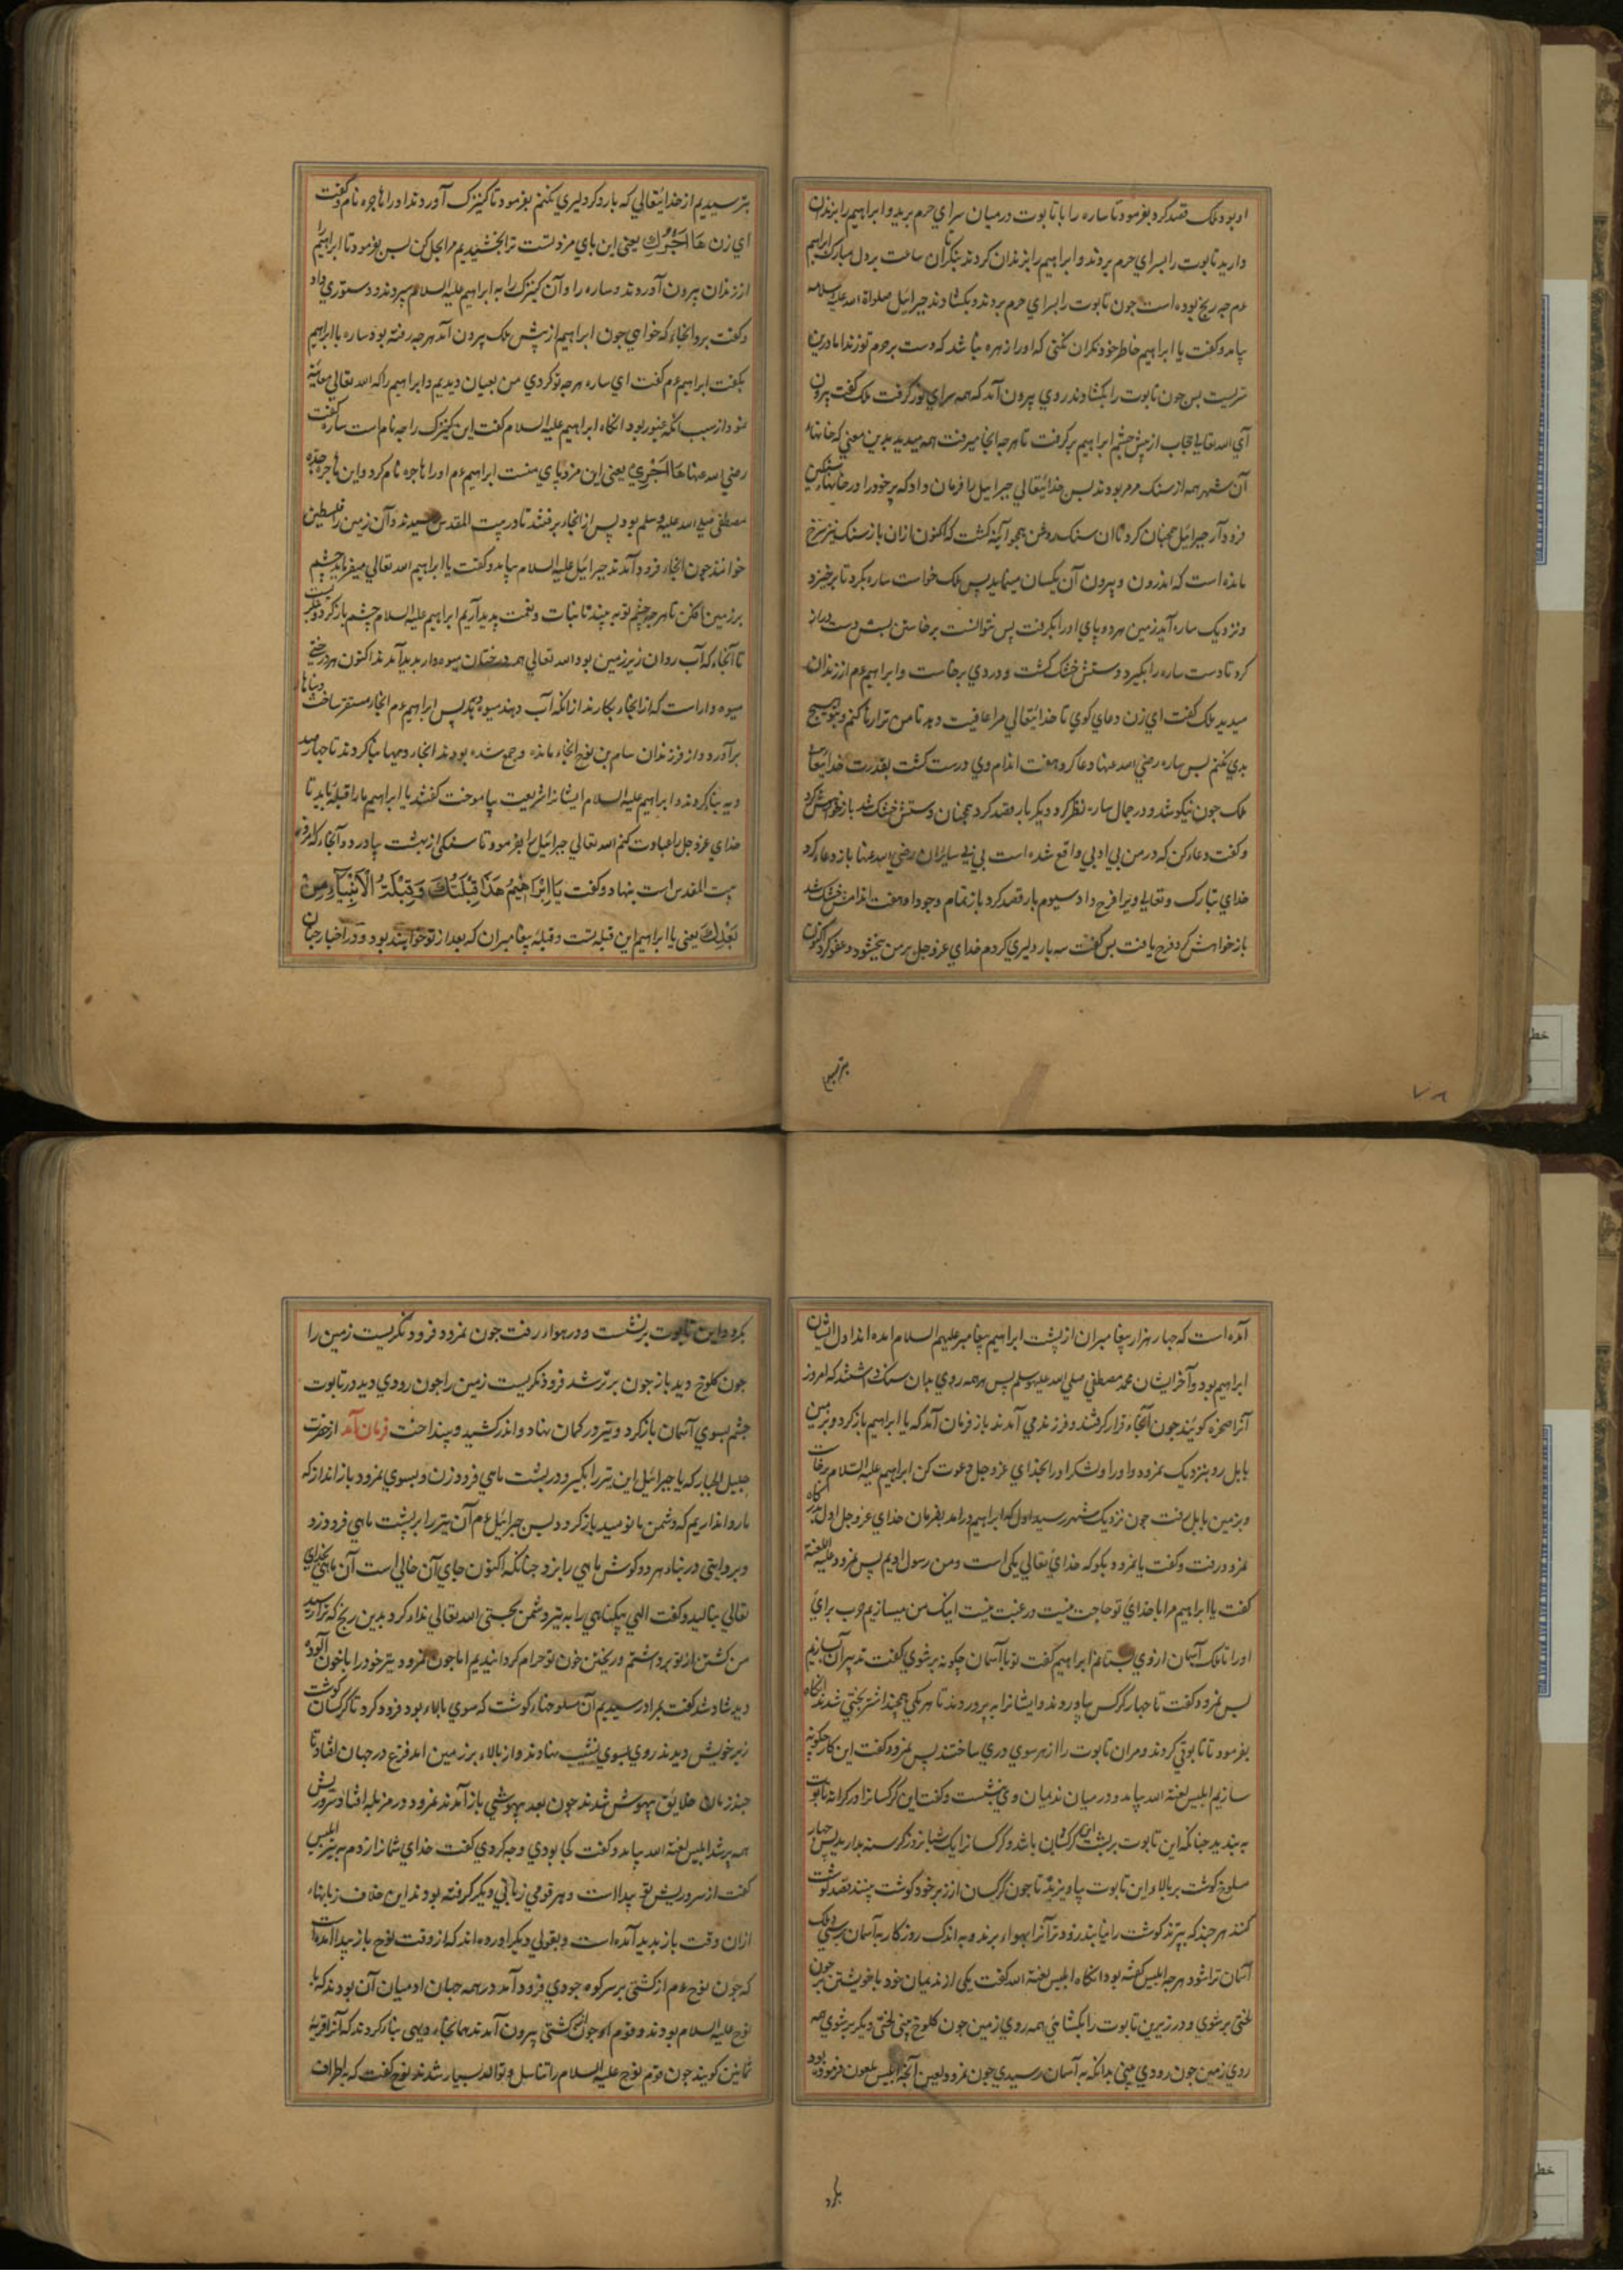 او بود ملک قصد کرد بفرمود تا ساره را با تابوت در میان سرای حرم برید و ابراهیم را بزندان
دارید تابوت را بسرای حرم بردند و ابراهیم را بزندان کردند بنگر تا آن ساعت بر دل مبارک ابراهیم
عم چه رنج بوده است چون تابوت را بسرای حرم بردند و بکشادند جبرائیل صلواة الله علیه و سلامه
بیامد و کفت یا ابراهیم خاطر خود نکران نکنی که او را زهره نباشد که دست بر حرم تو زند اما درین
سریست پس چون تابوت را بکشادند روی بیرون آمد که همه سرای نور کرفت ملک کفت بیرون
آی الله تعالی حجاب از پیش چشم ابراهیم بر کرفت تا هر چه انجا میرفت همه میدید بدین معنی که خانهاء
آن شهر همه از سنک مرمر بودند پس خدایتعالی جبرائیل را فرمان داد که پر خود را در خانهاء سنکین
فرود آر جبرائیل همچنان کرد تا ان سنک روشن همچو آئینه کشت که اکنون ازان باز سنک نیز سرخ
مانده است که اندرون و بیرون آن یکسان مینماید پس ملک خواست ساره بکرد تا برخیزد
و نزدیک ساره آید زمین هر دو پای او را بکرفت پس نتوانست برخاستن پس دست دراز
کرد تا دست ساره را بکیرد دستش خشک کشت و دردی برخاست و ابراهیم عم از زندان
میدید ملک کفت ای زن دعای کوی تا خدایتعالی مرا عافیت دهد تا من ترا رها کنم و بتو هیچ
بدی نکنم پس ساره رضی الله عنها دعا کرد هفت اندام وی درست کشت بقدرت خدایتعالی
ملک چون نیکو شد و در جمال ساره نظر کرد دیکر بار قصد کرد همچنان دستش خشک شد باز خواهش کرد
و کفت دعا کن که در من بی ادبی واقع شده است بی بی ساره رضی الله عنها باز دعا کرد
خدای تبارک و تعالی ویرا فرج داد سیوم بار قصد کرد باز تمام وجود او هفت اندامش خشک شد
باز خواهش کرد فرج یافت پس کفت سه بار دلیری کردم خدای عز و جل بر من بخشود و عفو کرد اکنون
بترسیدیم
بترسیدیم از خدایتعالی که بار دکر دلیری نکنم بفرمود تا کنیزک آوردند او را هاجره نام و کفت
ای زن هَا اَجْرُكِ یعنی این پای مزد تست ترا بخشیدیم مرا بحل کن پس بفرمود تا ابراهیم را
از زندان بیرون آوردند و ساره را و آن کنیزک را به ابراهیم علیه السلام سپردند و دستوری داد
و کفت برو انجاء که خواهی چون ابراهیم از پیش ملک بیرون آمد هر چه رفته بود ساره با ابراهیم
بکفت ابراهیم عم کفت ای ساره هر چه تو کردی من بعیان دیدیم و ابراهیم را که الله تعالی معاینه
نمود از سبب انکه غیور بود انکاه ابراهیم علیه السلام کفت این کنیزک را چه نام است ساره کفت
رضی الله عنها هَا اَجْرِیْ یعنی این مزد پای منست ابراهیم عم او را هاجره نام کرد و این هاجره جده
مصطفی صلی الله علیه و سلم بود پس از انجاء برفتند تا در بیت المقدس رسیدند و آن زمین را فلسطین
خوانند چون انجاء فرود آمدند جبرائیل علیه السلام بیامد و کفت یا ابراهیم الله تعالی میفرماید چشم
بر زمین افکن تا هر چه چشم تو به بیند تا نبات و نعمت پدید آریم ابراهیم علیه السلام چشم باز کرد و نکریست
تا آنجاء که آب روان زیر زمین بود الله تعالی همه درختان میوه دار بدید آمدند اکنون هر درختی
میوه دار است که از انجاء بکارند از انکه آب دهند میوه دهد پس ابراهیم عم انجاء مستقر ساخت دنیاها
برآورد و از فرزندان سام بن نوح انجاء مانده و جمع شده بودند انجاء دیهها بنا کردند تا چهار صد
دیه بنا کردند و ابراهیم علیه السلام ایشانرا شریعت بیاموخت کفتند یا ابراهیم ما را قبله باید تا
خدای عز و جل را عبادت کنیم الله تعالی جبرائیل را بفرمود تا سنکی از بهشت بیاورد و آنجاء که امروز
بیت المقدس است بنهاد و کفت یَا اِبْرَاهِیْمُ هَذَا قِبْلَتُكَ وَ قِبْلَةُ الْاَنْبِیَآءِ مِنْ
بَعْدِكَ یعنی یا ابراهیم این قبله تست و قبله پیغامبران که بعد از تو خواهند بود و در اخبار چنان
آمده است که چهار هزار پیغامبران از پشت ابراهیم پیغامبر علیهم السلام امده اند اول ایشان
ابراهیم بود و آخر ایشان محمد مصطفی صلی الله علیه و سلم پس همه روی بدان سنک داشتند که امروز
آنرا صخره کویند چون آنجاء قرار کرفتند و فرزند می آمدند باز فرمان آمد که یا ابراهیم باز کرد و بزمین
بابل رو بنزدیک نمرود و او را و لشکر او را بخدای عز و جل دعوت کن ابراهیم علیه السلام برخاست
و بزمین بابل رفت چون نزدیک شهر رسید اول که ابراهیم درامد بفرمان خدای عز و جل اول بدر کاه
نمرود رفت و کفت یا نمرود بکو که خدای تعالی یکی است و من رسول اویم پس نمرود علیه اللعنة
کفت یا ابراهیم مرا با خدای تو حاجت نیست و رغبت نیست اینک من میسازیم حرب برای
او را تا ملک آسمان از وی بستانم ابراهیم کفت تو با آسمان چکونه بر شوی کفت تدبیر آن سازیم
پس نمرود کفت تا چهار کرکس بیاوردند و ایشانرا به پروردند تا هر یکی همچند اشتر بختی شدند انکاه
بفرمود تا تابوتی کردند و مران تابوت را از هر سوی دری ساختند پس نمرود کفت این کار چکونه
سازیم ابلیس لعنة الله بیامد و در میان ندیمان وی بنشست و کفت این کرکسانرا در کرانه تابوت
به بندید چنانکه این تابوت بر پشت این کرکسان باشد و کرکسانرا یک شبانروز کرسنه بدارید پس چهار
مسلوخ کوشت بر بالاء این تابوت بیاویزند تا چون کرکسان از زبر خود کوشت بینند قصد کوشت
کنند هر چند که بپرند کوشت را نیابند زودتر آنرا بهواء برند و به اندک روزکار به آسمان برسی و ملک
آسمان ترا شود هر چه ابلیس کفته بود انکاه ابلیس لعنة الله کفت یکی از ندیمان خود با خویشتن بر چون
لختی بر شوی و در زیرین تابوت را بکشائی همه روی زمین چون کلوخ بینی لختی دیکر بر شوی همه
روی زمین چون رودی بینی بدانکه به آسمان رسیدی چون نمرود لعین آنچه ابلیس ملعون فرموده بود
بکرد
بکرد و این تابوت بر نشست و در هواء رفت چون نمرود فرود نکریست زمین را
چون کلوخ دید باز چون برتر شد فرود نکریست زمین را چون رودی دید در تابوت
چشم بسوی آسمان باز کرد و تیر در کمان نهاد و اندر کشید و بینداخت فرمان آمد از حضرت
جلیل الجبار که یا جبرائیل این تیر را بکیر و در پشت ماهی فرود زن و بسوی نمرود باز انداز که
ما روا نداریم که دشمن ما نومید باز کردد پس جبرائیل عم آن تیر را بر پشت ماهی فرود زد
و بروایتی در بناء هر دو کوش ماهی را بزد چنانکه اکنون جای آن خالی است آن ماهی بخدای
تعالی بنالید و کفت الهی بیکناهی را به تیر دشمن بخستی الله تعالی ندا کرد بدین رنج که ترا رسید
من کشتن از تو برداشتم و ریختن خون تو حرام کردانیدیم اما چون نمرود تیر خود را با خون آلوده
دید شاد شد کفت بمراد رسیدیم آن مسلوخهاء کوشت که سوی بالاء بود فرود کرد تا کرکسان کوشت
زیر خویش دیدند روی بسوی نشیب نهادند و از بالاء بر زمین امد فزع در جهان افتاد تا
چند زمان خلائق بیهوش شدند چون بعد بیهوشی باز آمدند نمرود در مزبله افتاد سر و ریش
همه پر شد ابلیس لعنة الله بیامد و کفت کجا بودی و چه کردی کفت خدای شما را زدم به تیر ابلیس
کفت از سر و ریش تو پیدا است و هر قومی زبانی دیکر کرفته بودند این خلاف زبانهاء
ازان وقت باز بدید آمده است و بقولی دیکر اورده اند که از وقت نوح باز پیدا آمده است
که چون نوح عم از کشتی بر سر کوه جودی فرود آمد در همه جهان ادمیان آن بودند که با
نوح علیه السلام بودند و قوم او چون از کشتی بیرون آمدند هم انجاء دیهی بنا کردند که آنرا قریهٔ
ثمانین کویند چون قوم نوح علیه السلام را تناسل و توالد بسیار شدند نوح کفت که به اطراف